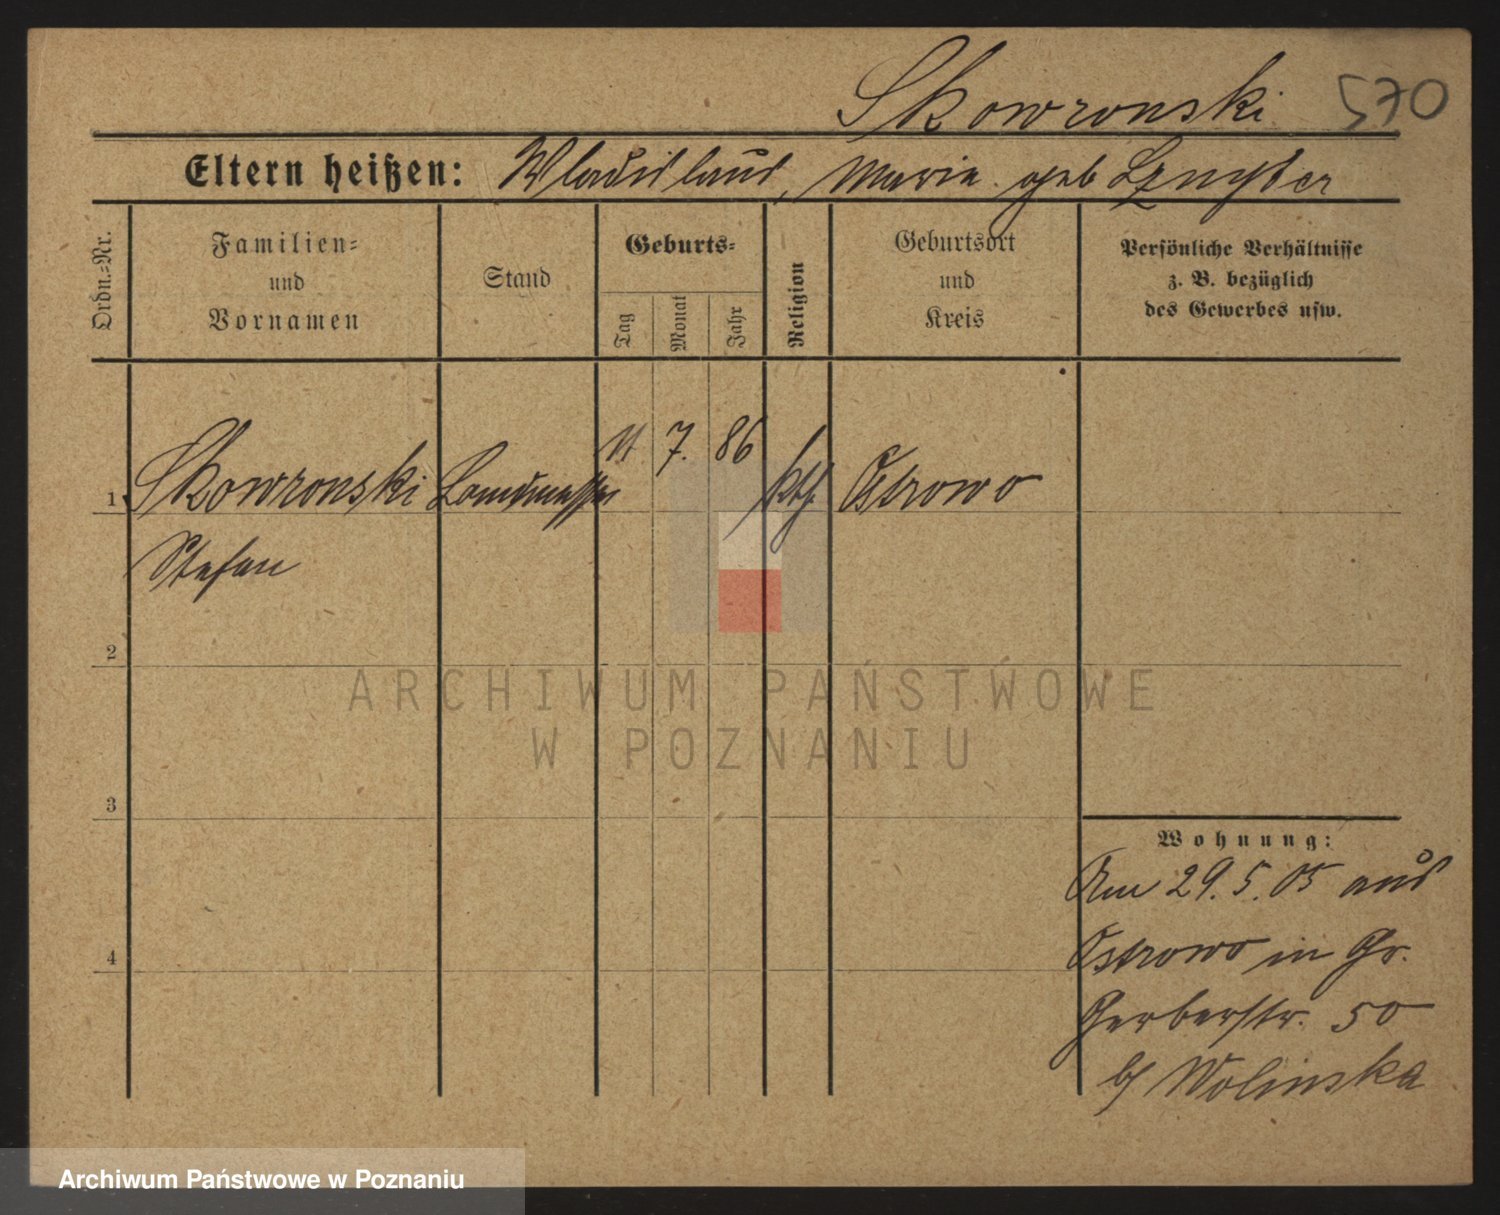 Skowronski 570
Eltern heißen: Wladislaus, Marie geb
Ordn.=Nr.
Familien=
und
Vornamen
Stand
Geburts=
Tag
Monat
Jahr
Religion
Geburtsort
und
Kreis
Persönliche Verhältnisse
z. B. bezüglich
des Gewerbes usw.
1 Skowronski Landmesser 7. 86 kth. Ostrowo
Stefan
2
3
4
Wohnung:
Am 29.5.05 aus
Ostrowo in Gr.
Gerberstr. 50
b/ Wolinska
ARCHIWUM PAŃSTWOWE
W POZNANIU
Archiwum Państwowe w Poznaniu